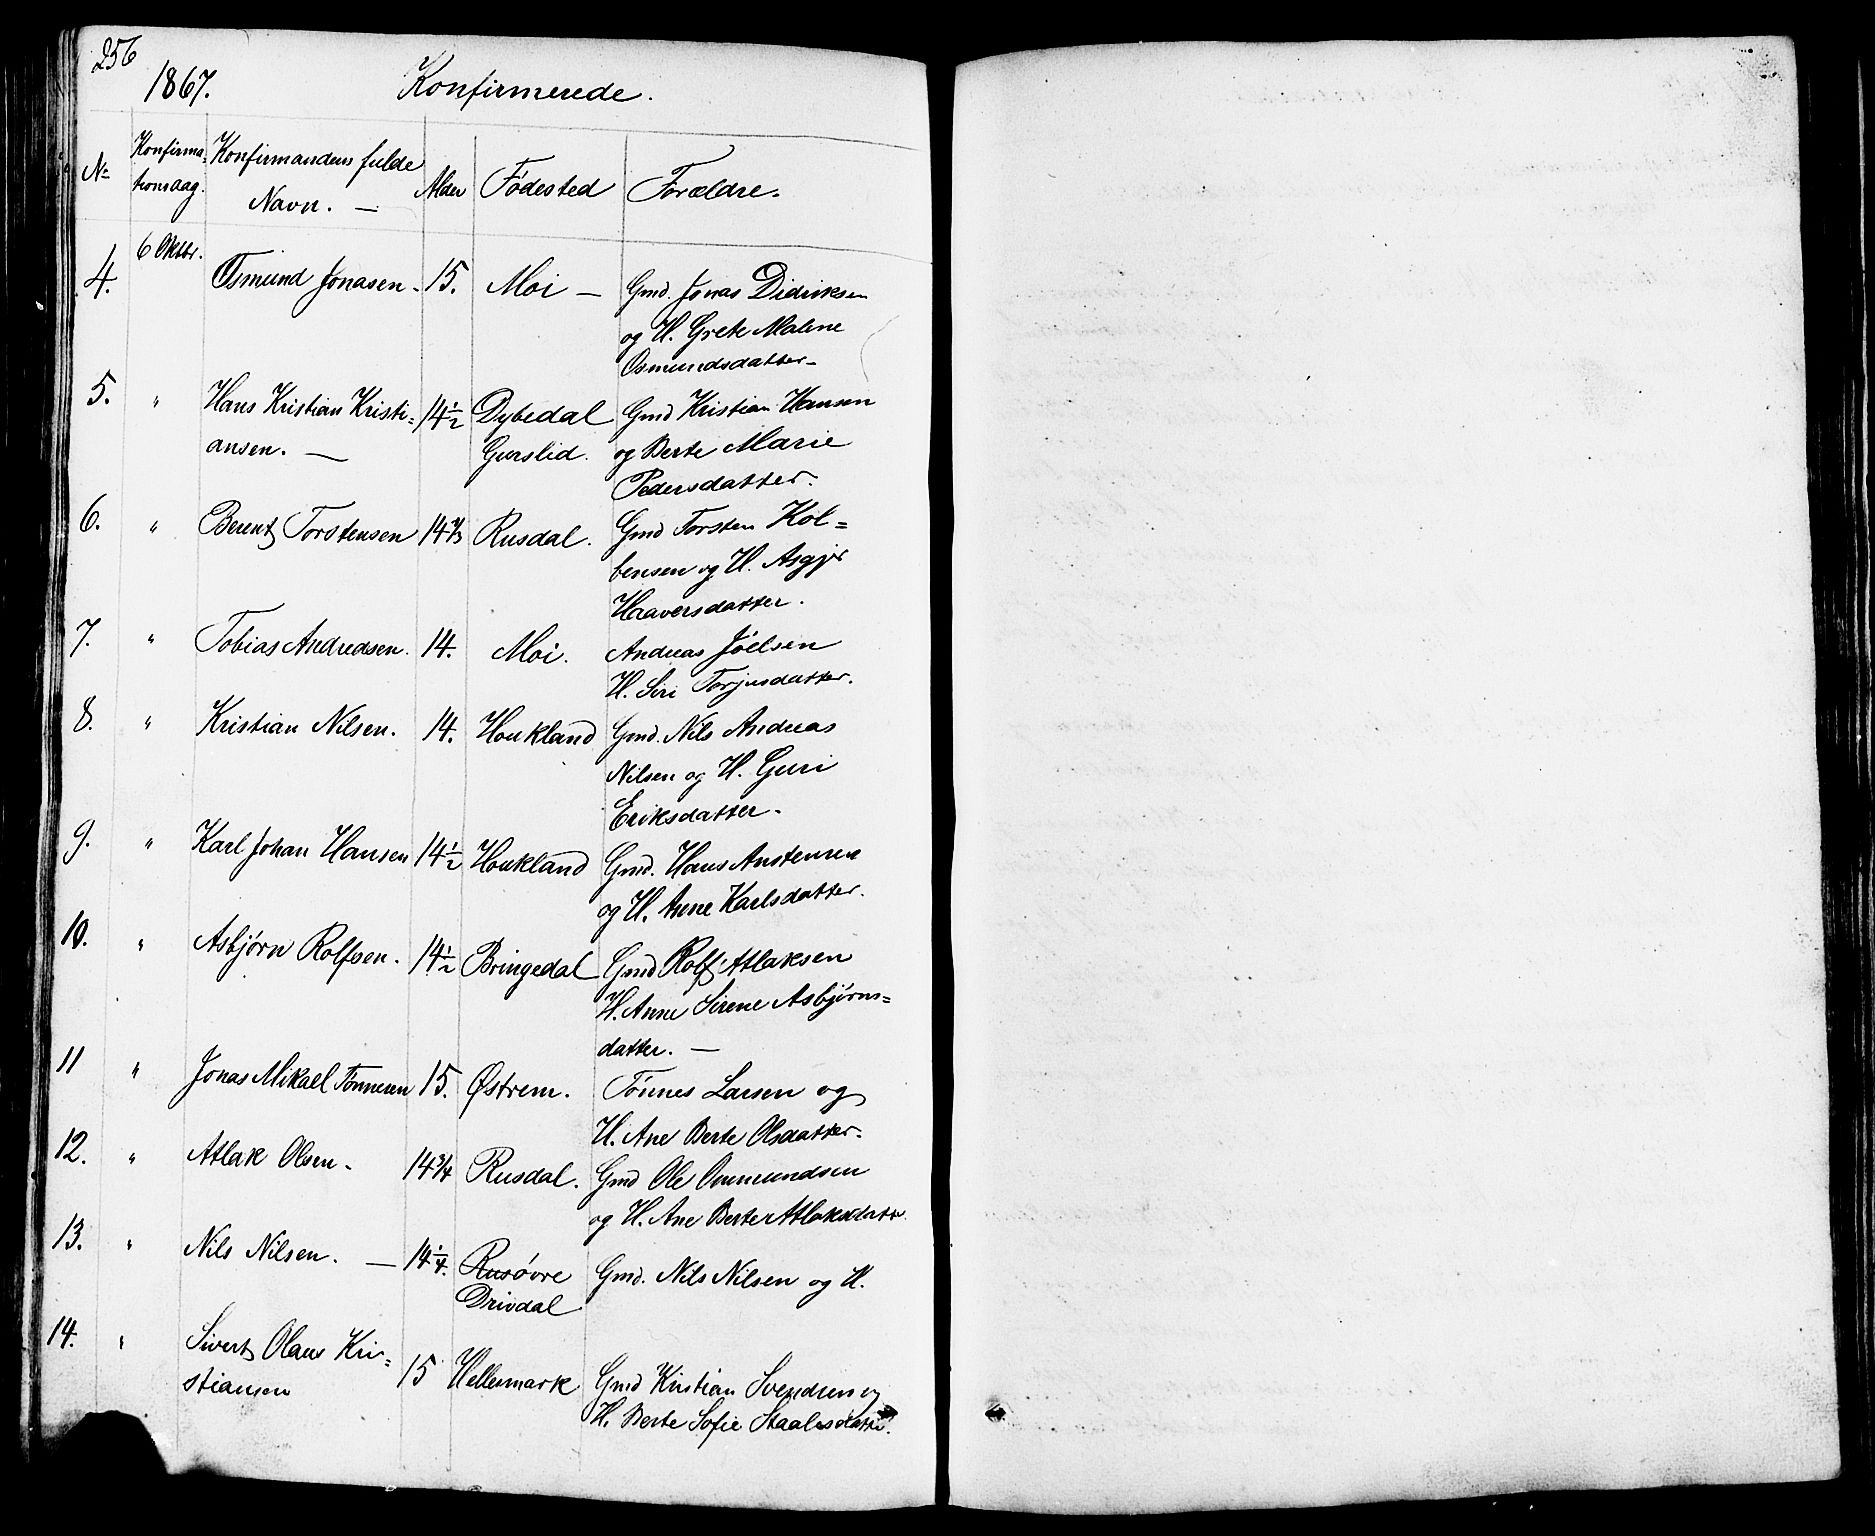 256
1867. Konfirmerede.
No Konfirma-tionsdag. Konfirmandens fulde Navn. — Alder Fødested Forældre.
4. 6 Oktbr. Osmund Jonasen - 15. Moi — Gmd. Jonas Didriksen
og H. Grete Malene
Osmundsdatter -
5. " Hans Kristian Kristi= 14½ Dybedal Gmd Kristian Hansen
ansen. — Gurslid. og Berte Marie
Pedersdatter.
6. " Berent Torstensen 14⅔ Rusdal. Gmd Torsten Kol=
bensen og H. Asgjer
Haaversdatter.
7. " Tobias Andredsen. 14. Moi. Andreas Joelsen
H. Siri Torjusdatter.
8. " Kristian Nilsen. 14. Houkland Gmd. Nils Andreas
Nilsen og H. Guri
Eriksdatter.
9. " Karl Johan Hansen 14½ Houkland Gmd. Hans Anstensen
og H. Anne Karlsdatter.
10. " Asbjørn Rolfsen. 14½ Bringedal Gmd Rolf Atlaksen
H. Anne Sirene Asbjørns=
datter. —
11 " Jonas Mikael Tønnesen 15. Østrem. Tónnes Larsen og
H. Ane Berte Olsdatter.
12. " Atlak Olsen - 14¾ Rusdal. Gmd Ole Ommundsen
og H. Ane Berte Atlaksdatr.
13. " Nils Nilsen. — 14¼. Rusóvre Gmd. Nils Nilsen og H.
Drivdal
14. " Sivert Olaus Kri= 15 Hellesmark Gmd Kristian Svendsen og
stiansen H. Berte Sofie Staalesdatter.